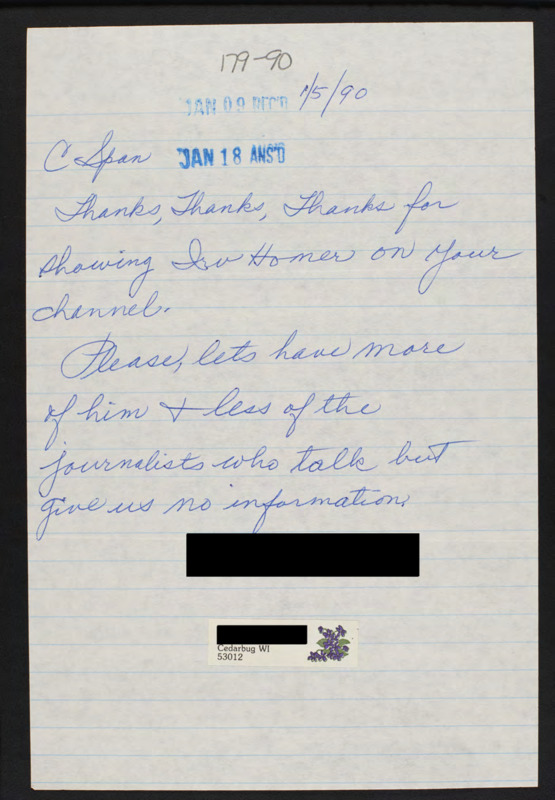 179-90
JAN 09 REC'D 1/5/90
C Span JAN 18 ANS'D
Thanks, Thanks, Thanks for
showing Irv Homer on your
channel.
Please, lets have more
of him & less of the
journalists who talk but
give us no information.
Cedarbug WI
53012